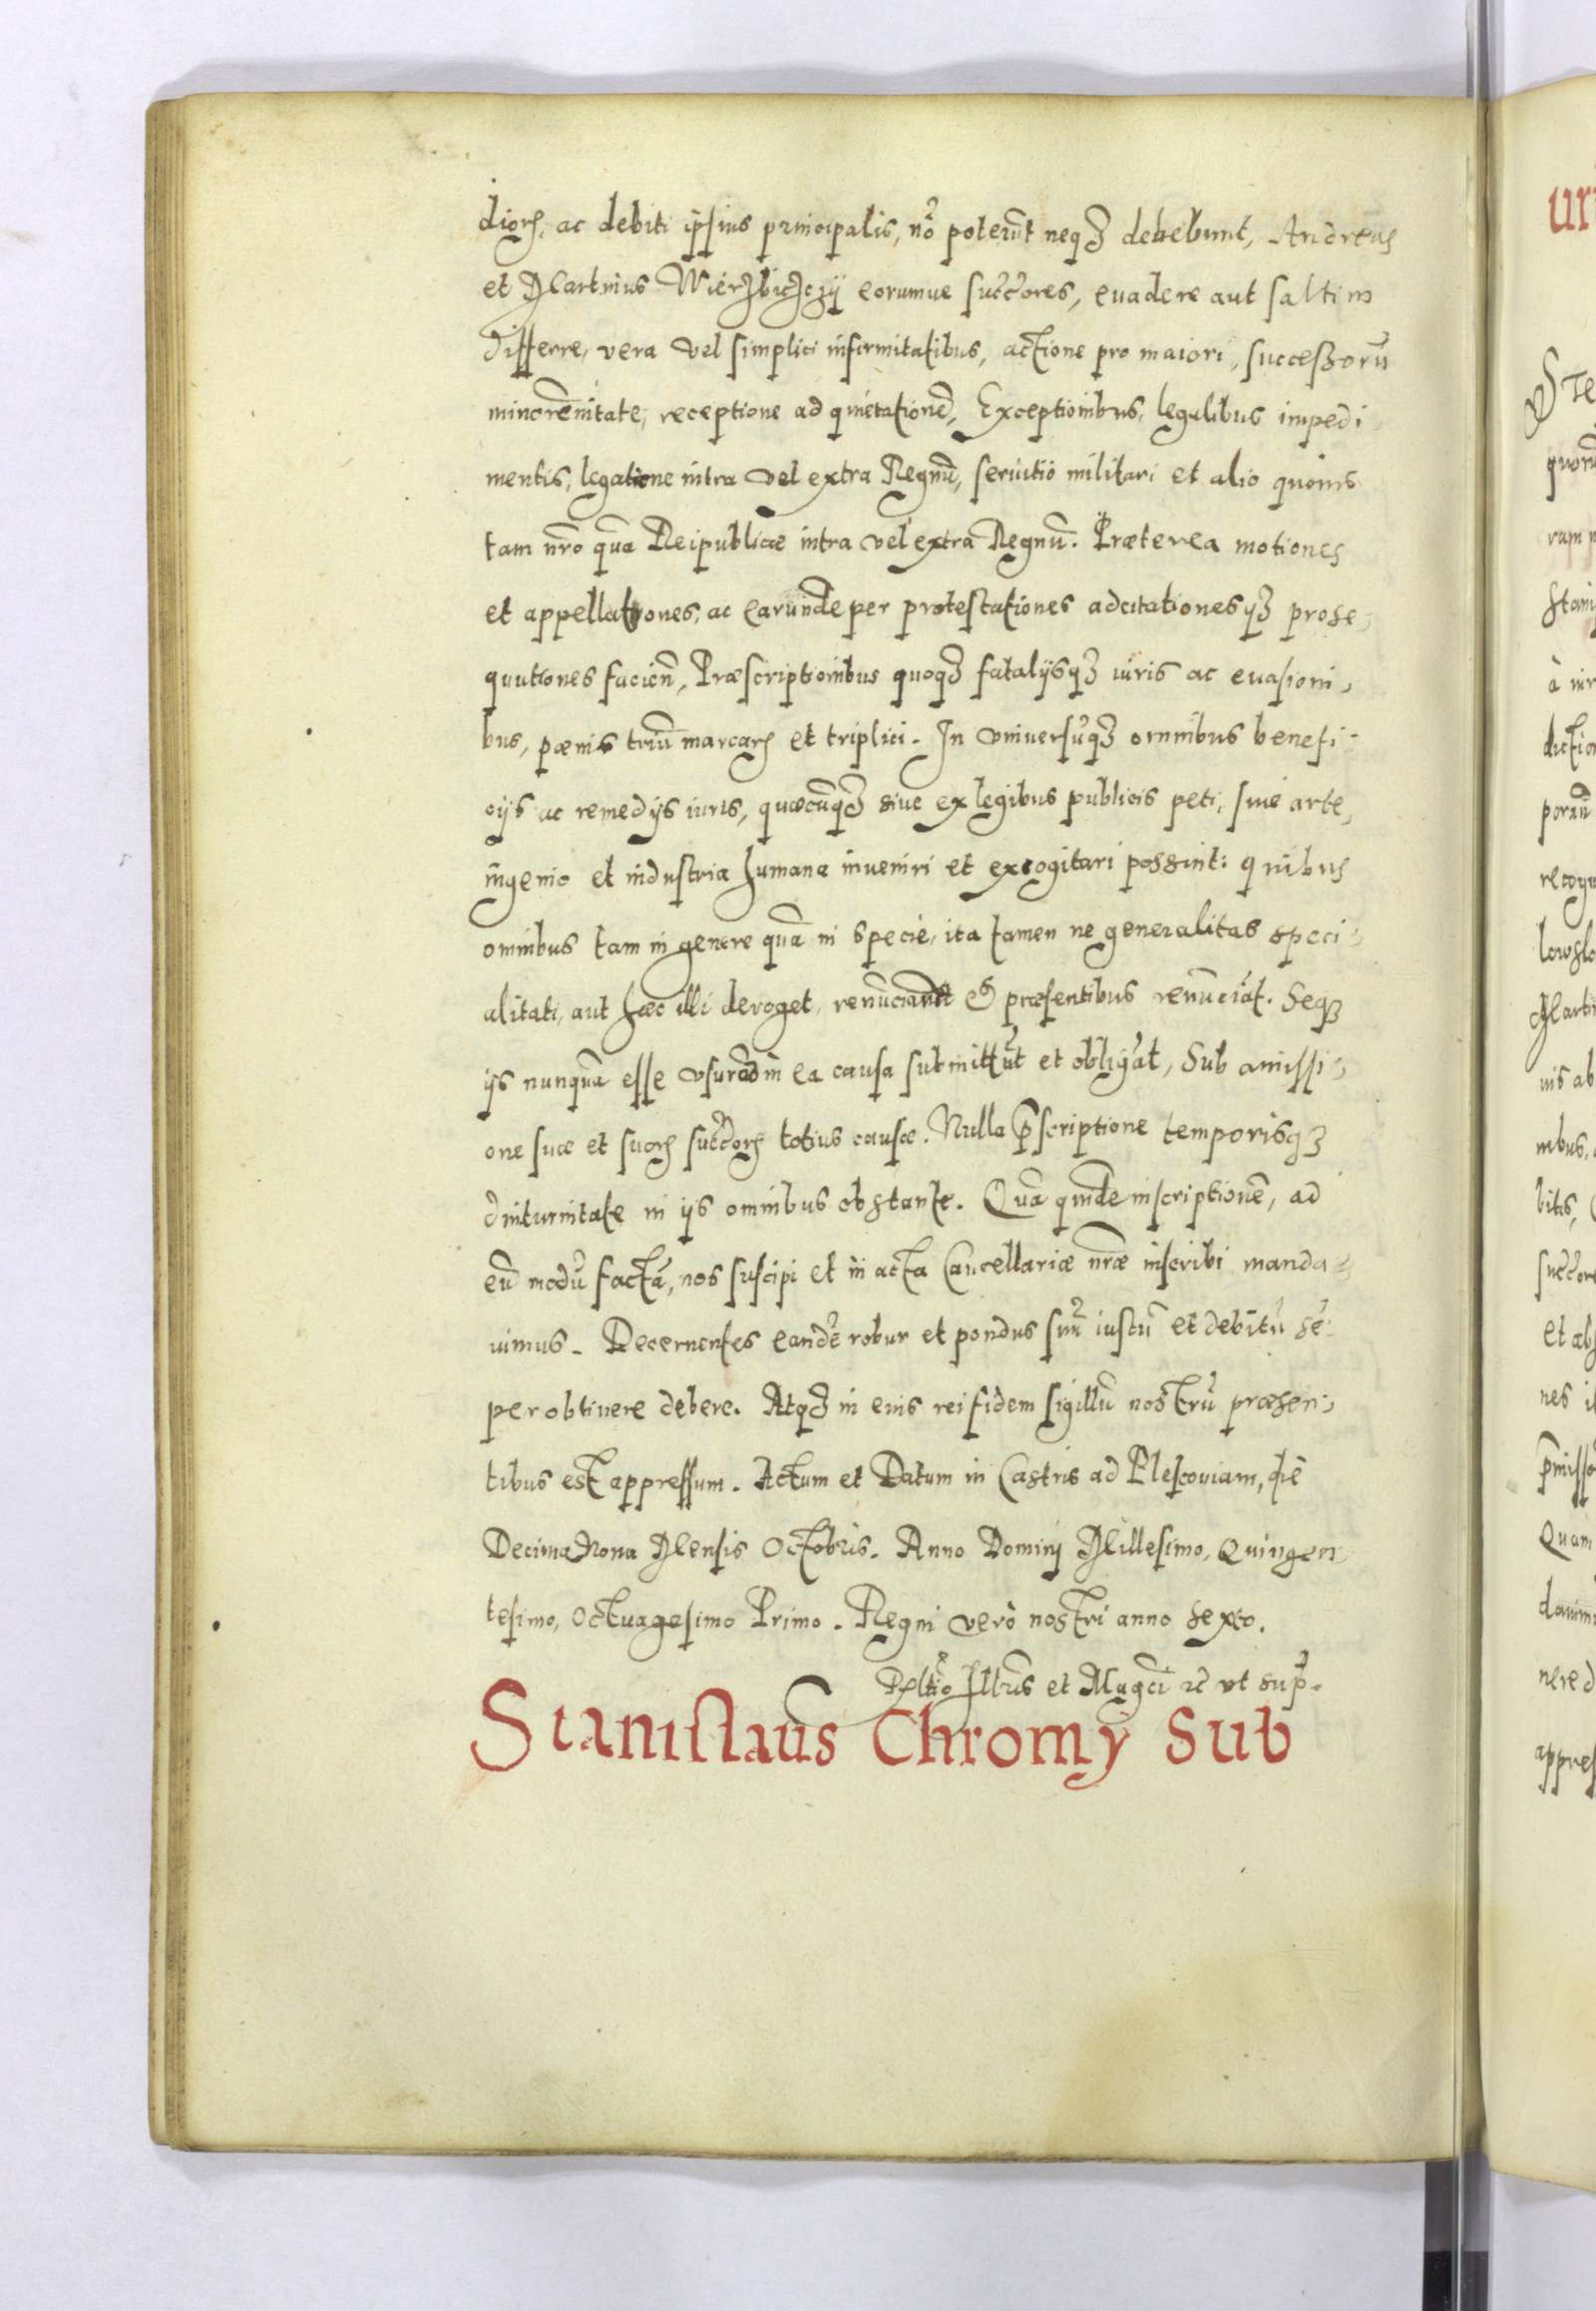 diorꝝ, ac debiti ipsius principalis, nõ poterũt neqꝫ debebunt, Andreas
et Martinus Wierzbiczczÿ eorumue succ̃ores, euadere aut saltim
differre, vera vel simplici infirmitatibus, actione pro maiori, successorũ
minorẽnitate, receptione ad quietationẽ, Exceptionibus, legalibus impedi
mentis, legatione intra vel extra Regnũ, seruitio militari et alio quouis
tam nr̃o quã Reipublicae intra vel extra Regnũ. Præterea motiones
et appellationes, ac earundẽ per protestationes adcitationesqꝫ prose,
quutiones facieñ, Præscriptionibus quoqꝫ fatalijsqꝫ iuris ac euasioni,
bus, pœnis triũ marcarꝝ et triplici. In vniuersũqꝫ omnibus benefi-
cijs ac remedijs iuris, quæcũqꝫ siue ex legibus publicis peti, siue arte,
ingenio et industria humana inueniri et excogitari possint: quibus
omnibus tam in genere quã in specie, ita tamen ne generalitas speci-
alitati, aut hæc illi deroget, præsentibus renũciãt. Seqꝫ
ijs nunquã esse in ea causa submittũt et obligãt, Sub amissi-
one suæ et suorꝝ succ̃orꝝ totius causæ. Nulla p̃scriptione temporisqꝫ
diuturnitate in ijs omnibus obstante. Quã quidẽ inscriptionẽ, ad
eũ modũ factã, nos suscipi et in acta Cancellariæ nr̃æ inscribi manda-
uimus. Decernentes eandẽ robur et pondus suũ iustũ et debitũ sẽ-
per obtinere debere. Atqꝫ in eius rei fidem sigillũ nostrũ præsen-
tibus est appressum. Actum et Datum in Castris ad Plescouiam, diẽ
Decima Nona Mensis Octobris. Anno Domini Millesimo, Quingen
tesimo, Octuagesimo Primo. Regni verò nostri anno sexto.
Rel̃tio Ill̃ris et Mag̃ci ꝛc̃ vt sup̃.
Stanislaũs Chromÿ Sub